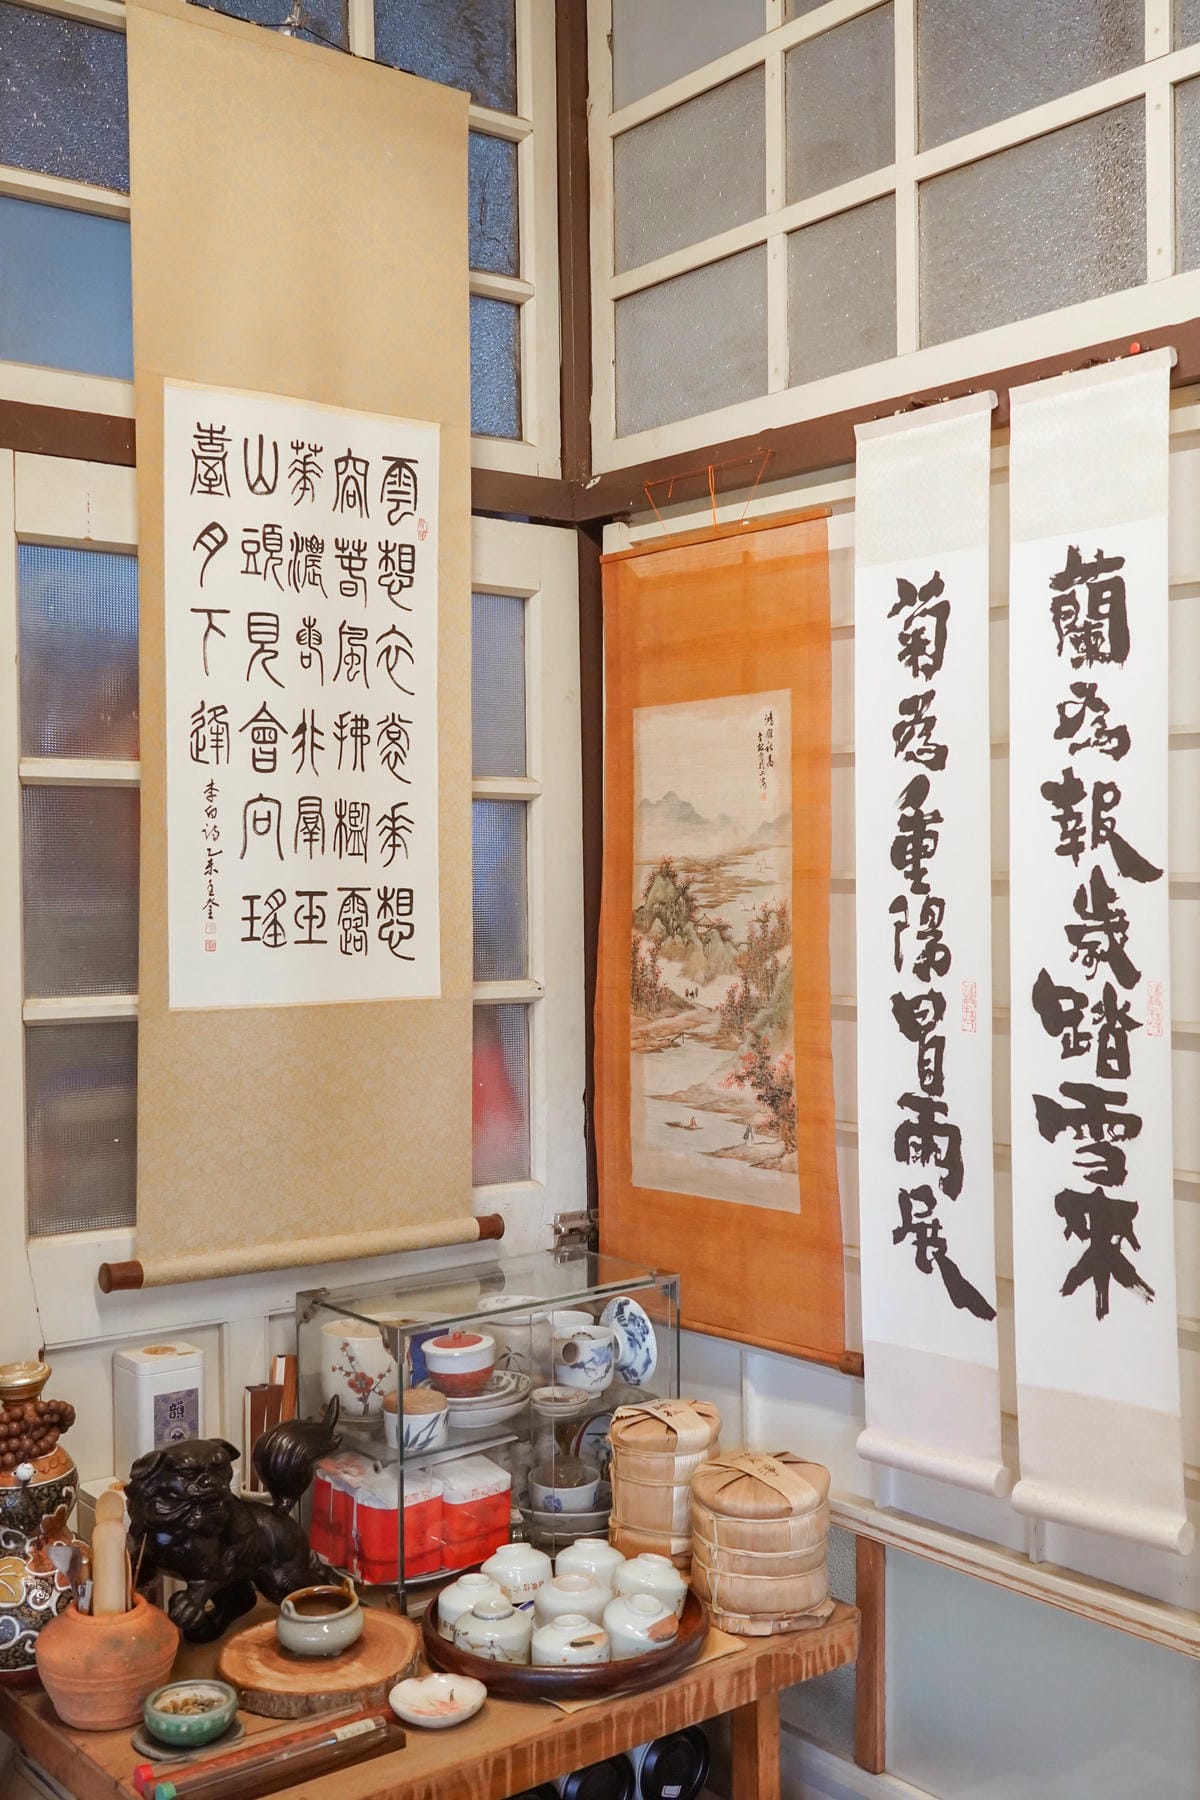 雲想衣裳華想
容春風拂檻露
華濃若非羣玉
山頭見會向瑤
臺月下逢
李白詩 乙未
蘭為報歲踏雪來
菊為重陽冒雨展
韻